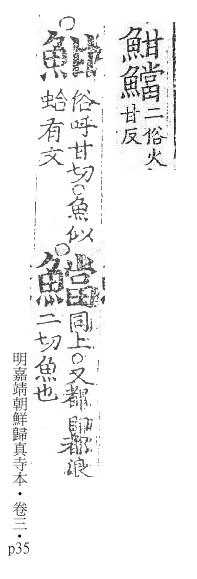 魽
二俗火
甘反
魽
俗呼甘切○魚似
蛤有文
同上○又都郎都浪
二切魚也
明嘉靖朝鮮歸真寺本・卷三・
p35